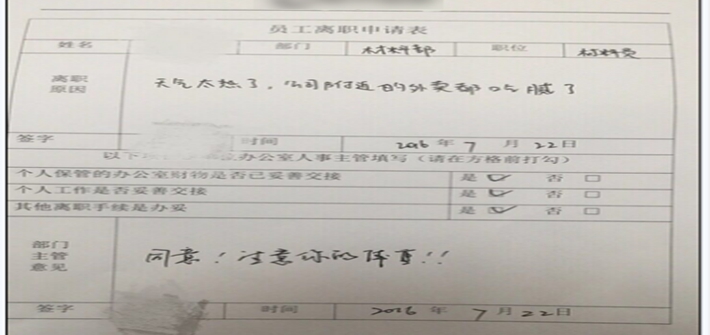 员工离职申请表
姓名 部门 材料部 职位 材料员
离职原因 天气太热了,公司附近的外卖都吃腻了
签字 时间 2016年7月22日
以下 办公室人事主管填写(请在方格前打勾)
个人保管的办公室财物是否已妥善交接 是 否
个人工作是否妥善交接 是 否
其他离职手续是办妥 是 否
部门主管意见 同意!注意你的
签字 时间 2016年7月22日